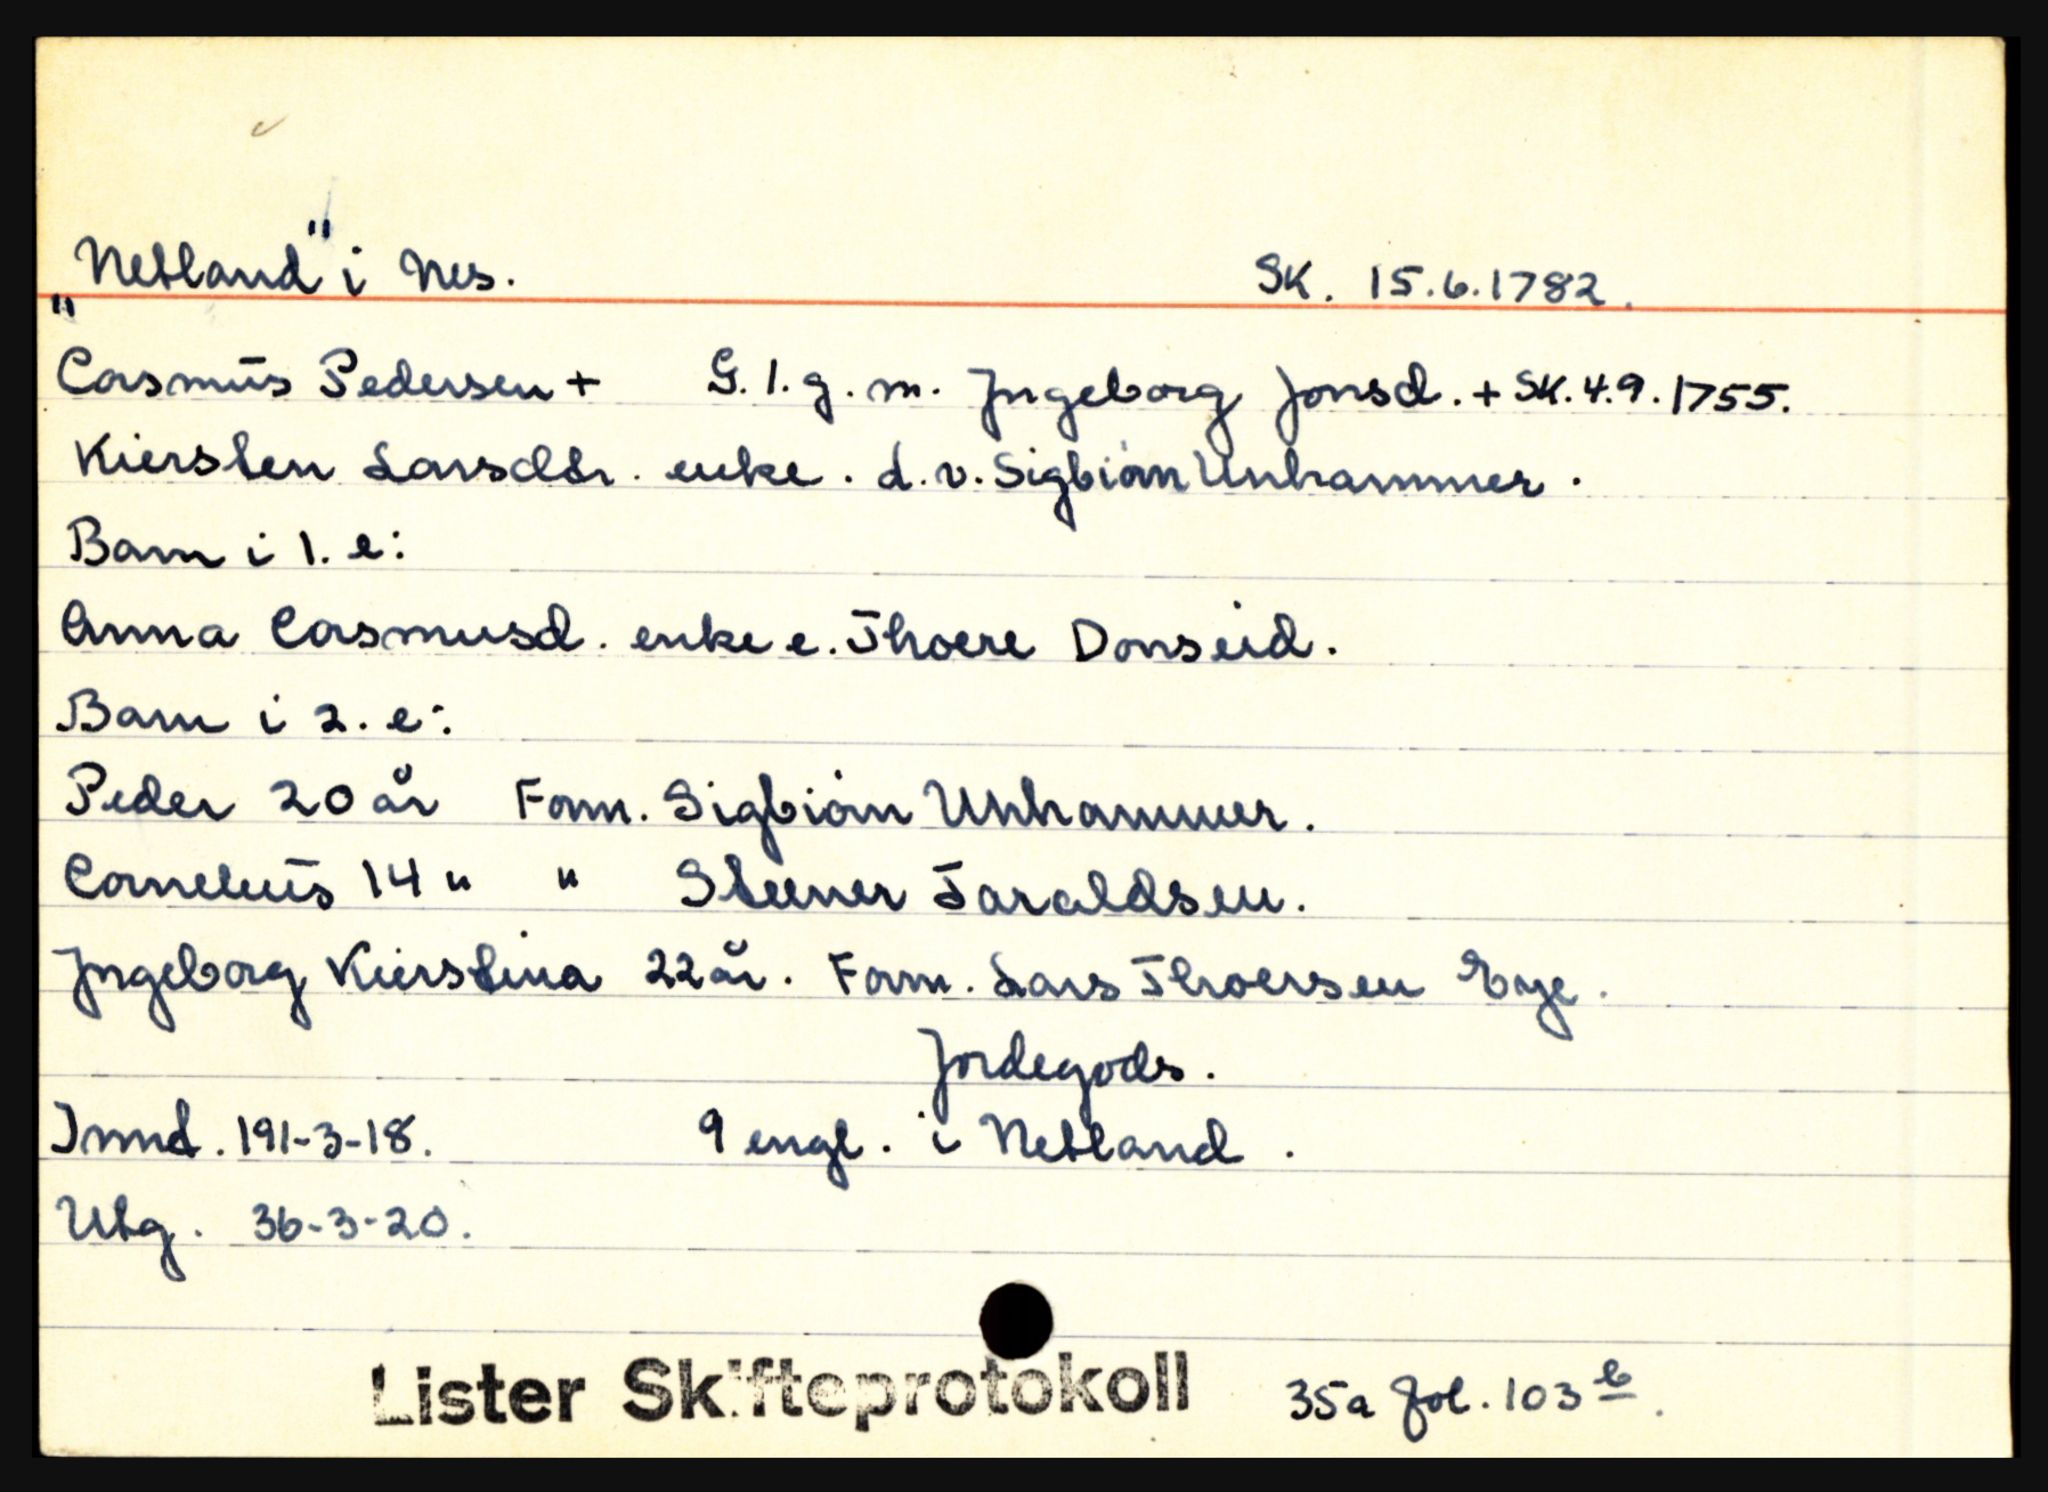 „Netland" i Nes. SK. 15.6.1782.
Casmus Pedersen + G. 1. g. m. Ingeborg Jonsd. + SK. 4.9.1755.
Kiersten Larsdtr. enke. d. v. Sigbiörn Unhammer.
Barn i 1. e:
Anna Casmusd. enke e. Thoere Donseid.
Barn i 2. e:
Peder 20 år Form. Sigbiörn Unhammer.
Cornelius 14 " " Steener Taraldsen.
Ingeborg Kierstina 22 år. Form. Lars Thoersen Eye.
Jordegods.
Innd. 191-3-18. 9 engl. i Netland.
Utg. 36-3-20.
Lister Skifteprotokoll 35a fol. 103 b.